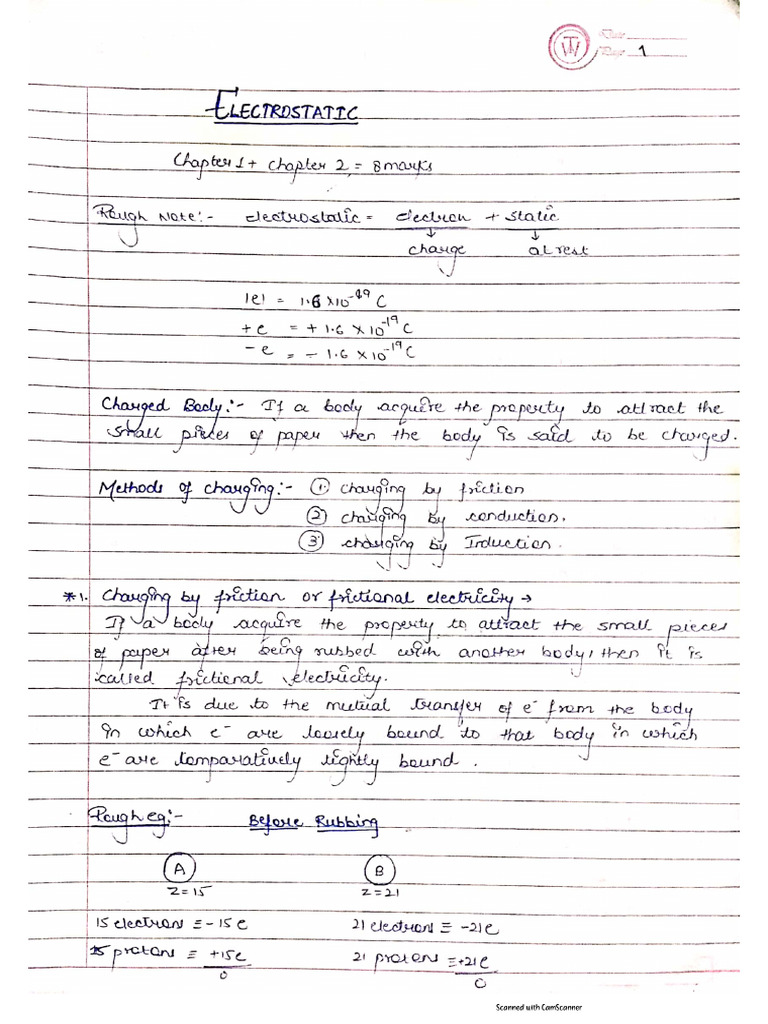 Date
Page 1
ELECTROSTATIC
Chapter 1 + chapter 2 = 8 marks
Rough Note:- electrostatic = electron + static
↓ ↓
charge at rest
|e| = 1.6 × 10⁻¹⁹ C
+e = +1.6 × 10⁻¹⁹ C
-e = -1.6 × 10⁻¹⁹ C
Charged Body:- If a body acquire the property to attract the
small pieces of paper then the body is said to be charged.
Methods of charging:- ① charging by friction
② charging by conduction.
③ charging by Induction.
*1. Charging by friction or frictional electricity →
If a body acquire the property to attract the small pieces
of paper after being rubbed with another body, then it is
called frictional electricity.
It is due to the mutual transfer of e⁻ from the body
in which e⁻ are loosely bound to that body in which
e⁻ are comparatively tightly bound.
Rough eg:- Before Rubbing
A B
Z=15 Z=21
15 electrons ≡ -15e 21 electrons ≡ -21e
15 protons ≡ +15e 21 protons ≡ +21e
0 0
Scanned with CamScanner